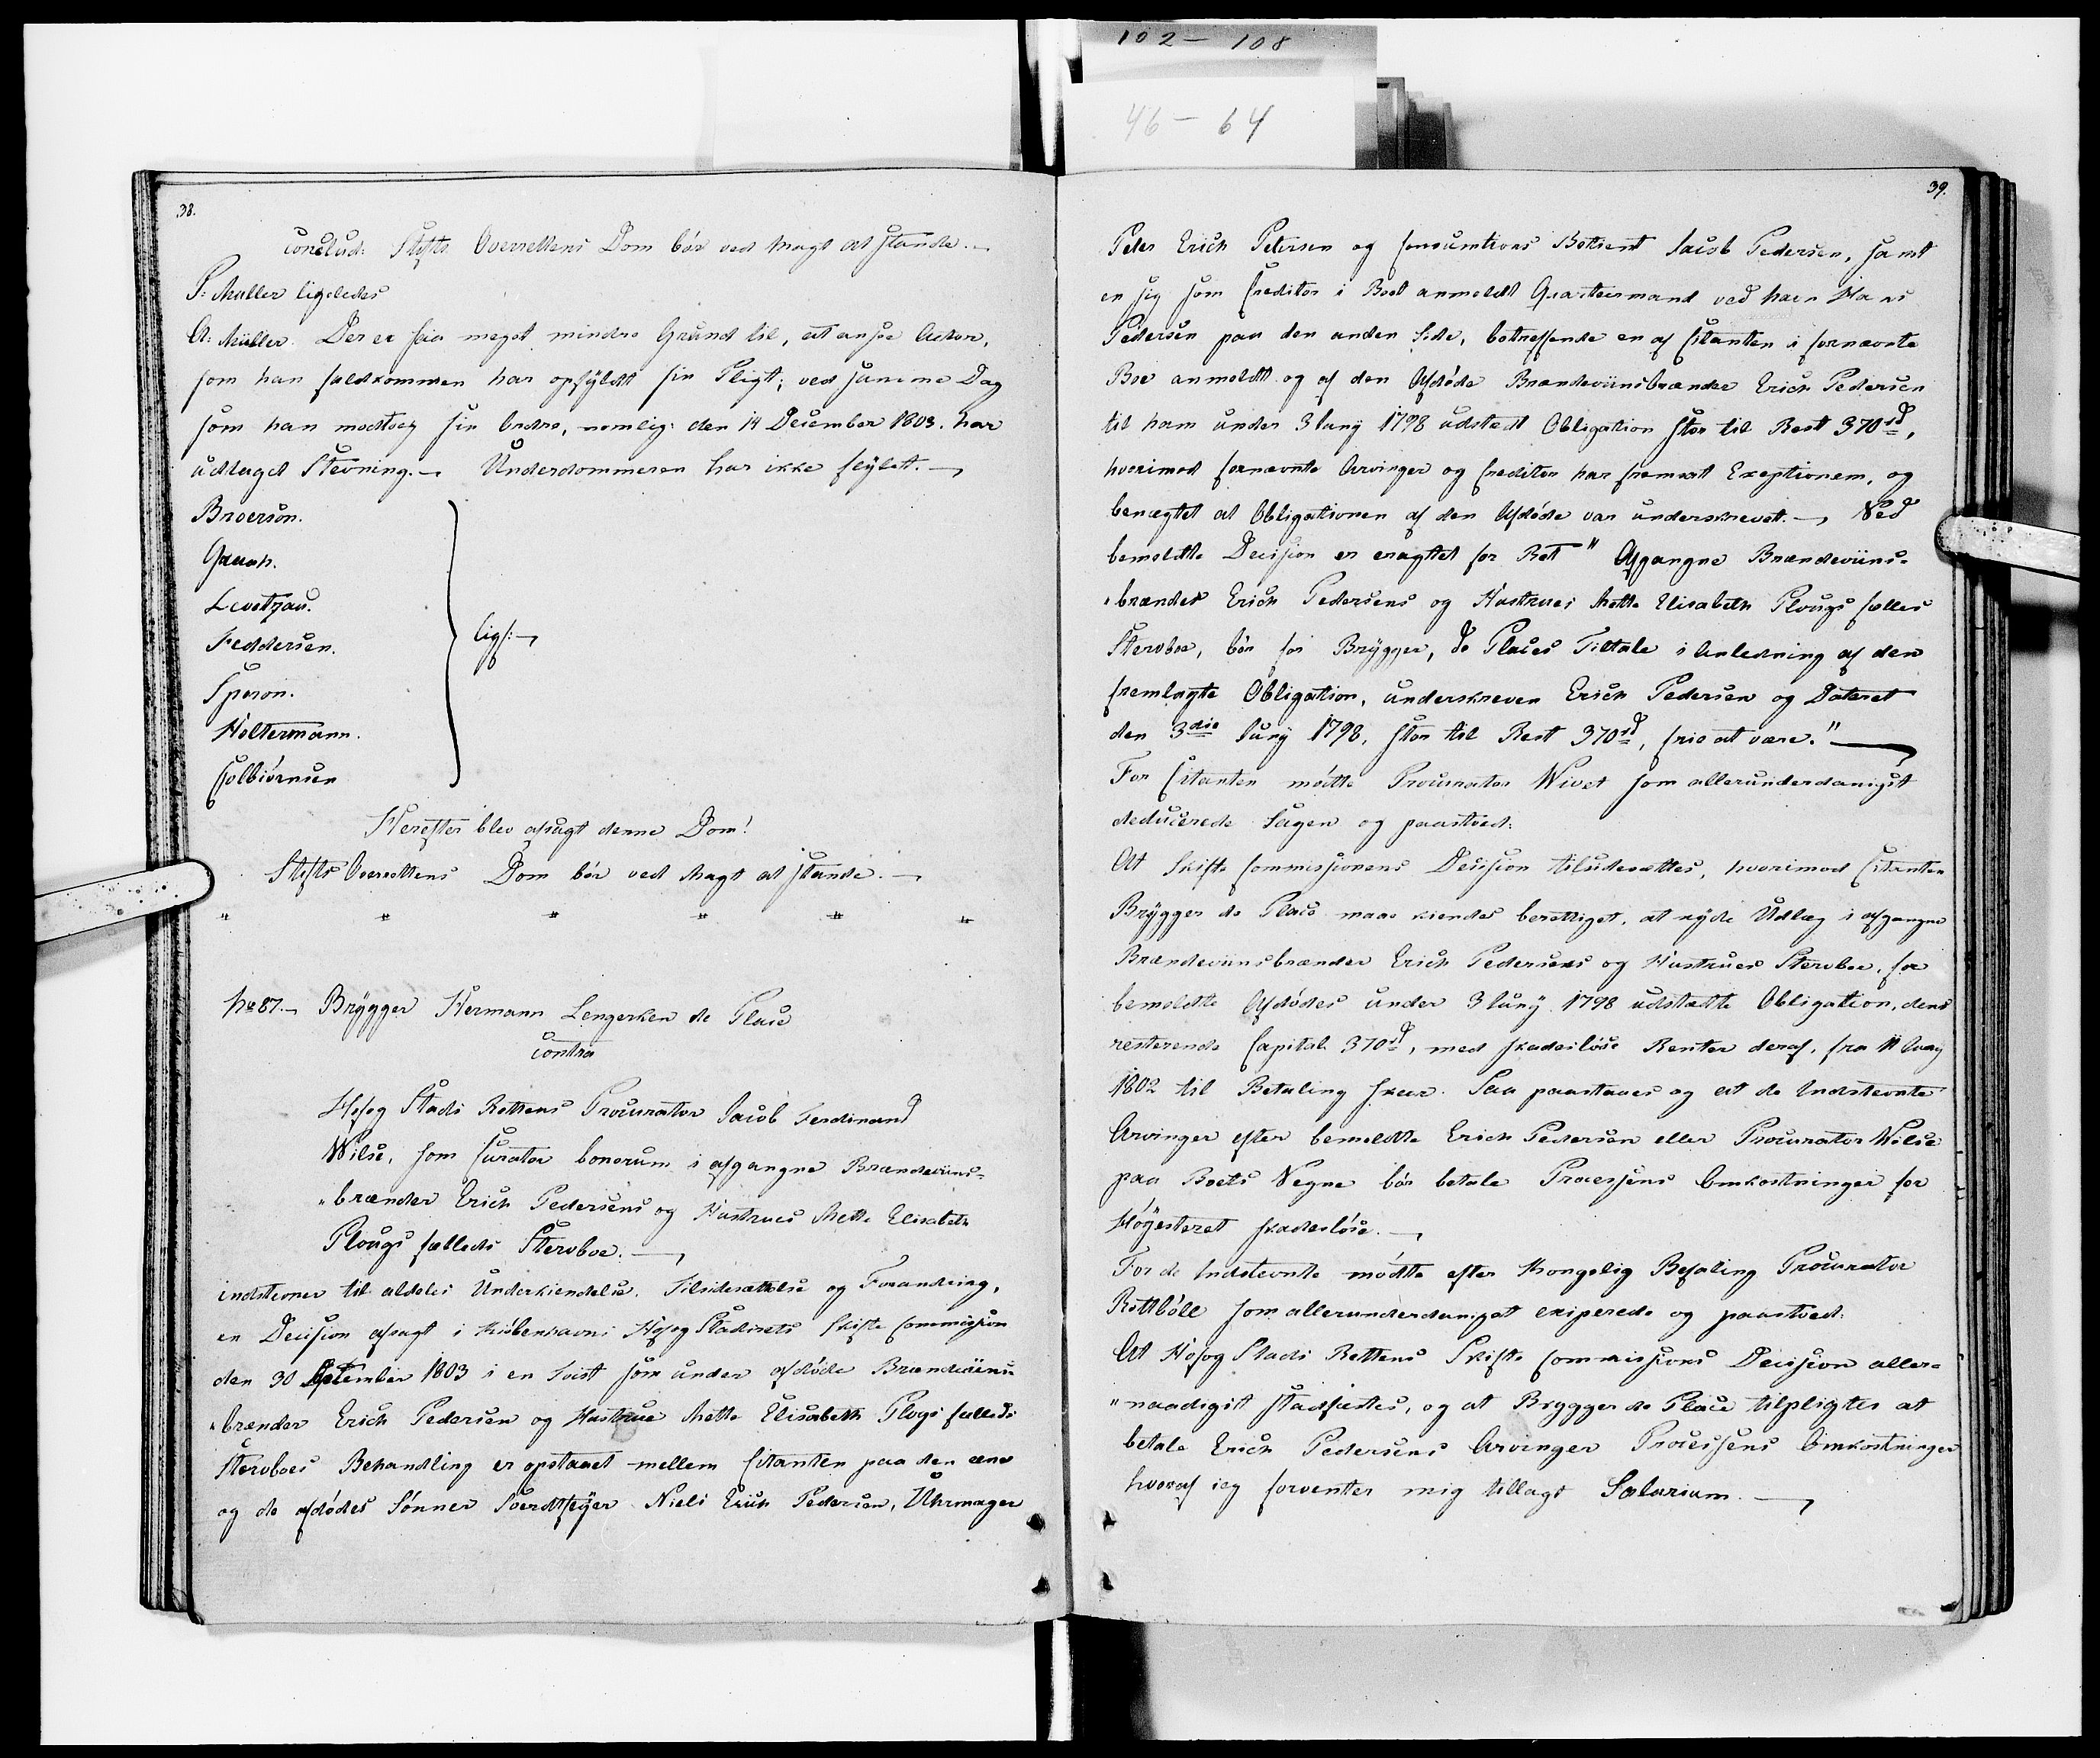 102 - 108
46 - 64
38.
conclud: Stifts Overrettens Dom bør ved Magt at stande.
P: Müller ligeledes
A: Müller. Der er saa meget mindre Grund til, at ansee Actor,
som han fuldkommen har opfyldt sin Pligt; ved samme Dag
som han modtog sin Ordre, nemlig: den 14 December 1803. har
udtaget Stevning. Underdommeren har ikke feylet.
Broerson.
Graah.
Levetzau.
Feddersen.
ligs:
Speron.
Holtermann.
Colbiörnsen
Herefter blev afsagt denne Dom!
Stifts Overrettens Dom bør ved Magt at stande.
" " " " " "
No 87. Brÿgger Hermann Lengerken de Place
contra
Hofog Stads Rettens Procurator Jacob Ferdinand
Wilse, som Curator bonorum i afgangne Brændeviins-
"brænder Erich Pedersens og Hustrues Mette Elisabeth
Plougs fælleds Sterboe.
indstevner til aldeles Underkiendelse, Tilsidesættelse og Forandring,
en Decision afsagt i Kiøbenhavns Hofog Stadsrets Skifte Commission
den 30 September 1803 i en Tvist som under afdøde Brændeviins-
"brænder Erich Pedersen og Hustrue Mette Elisabeth Plogs fælleds
Sterboes Behandling er opstaaet mellem Citanten paa den ene
og de afdødes Sønner Sverdtfeÿer Niels Erich Pedersen, Uhrmager
39.
Peter Erich Petersen og Consumtions Betient Jacob Pedersen, samt
en sig som Creditor i Boet anmeldt Qvarteermand ved Navn Hans
Pedersen paa den anden Side, betreffende en af Citanten i fornævnte
Boe anmeldt og af den Afdøde Brændeviinsbrænder Erich Pedersen
til ham under 3 Junÿ 1798 udstædt Obligation stor til Rest 370 rd,
hvorimod fornævnte Arvinger og Creditor har fremsat Exeptionem, og
benægtet at Obligationen af den Afdøde var underskrevet. Ved
bemeldte Decision er eragtet for Ret " Afgangne Brændeviins-
"brænder Erich Pedersens og Hustrues Mette Elisabeth Plougs fælles
Sterboe, bør for Brÿgger, de Places Tiltale i Anledning af den
fremlagte Obligation, underskreven Erich Pedersen og Dateret
den 3die Junÿ 1798, stor til Rest 370 rd, frie at være."
For Citanten mødte Procurator Wivet som allerunderdanigst
deducerede Sagen og paastod:
At Skifte Commissionens Decision tilsidesættes, hvorimod Citanten
Brÿgger de Place maae kiendes berettiget, at nyde Udlæg i afgangne
Brændeviinsbrænder Erich Pedersens og Hustrues Sterboe, for
bemeldte Afdødes under 3 Junÿ 1798 udstædte Obligation, dens
resterende Capital 370 rd, med skadesløse Renter deraf, fra 11 Junÿ
1802 til Betaling skeer. Saa paastaaes og at de Indstevnte
Arvinger efter bemeldte Erich Pedersen eller Procurator Wilse
paa Boets Vegne bør betale Processens Omkostninger for
Høÿesteret skadesløse.
For de Indstevnte mødte efter Kongelig Befaling Procurator
Rottbøll som allerunderdanigst exiperede og paastod:
At Hofog Stads Rettens Skifte Commissions Decision aller-
"naadigst stadfæstes, og at Brygger de Place tilpligtes at
betale Erich Pedersens Arvinger Processens Omkostninger
hvoraf ieg forventer mig tillagt Salarium.